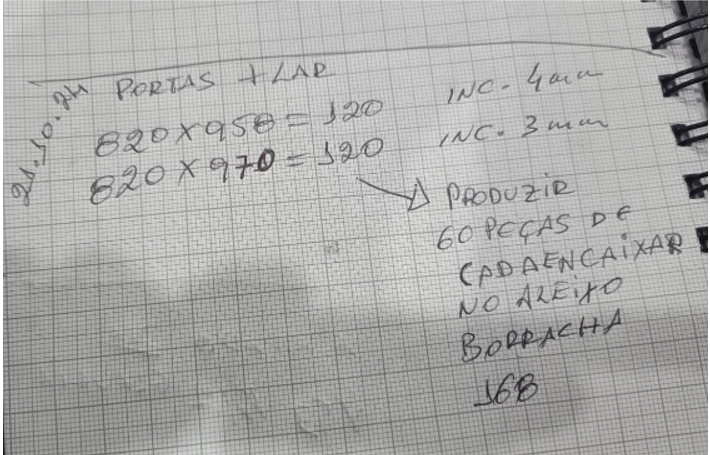 21.10.24
PORTAS + LAR
820 x 958 = 120 INC. 4mm
820 x 970 = 120 INC. 3mm
PRODUZIR
60 PEÇAS DE
CADA ENCAIXAR
NO ALEIXO
BORRACHA
168